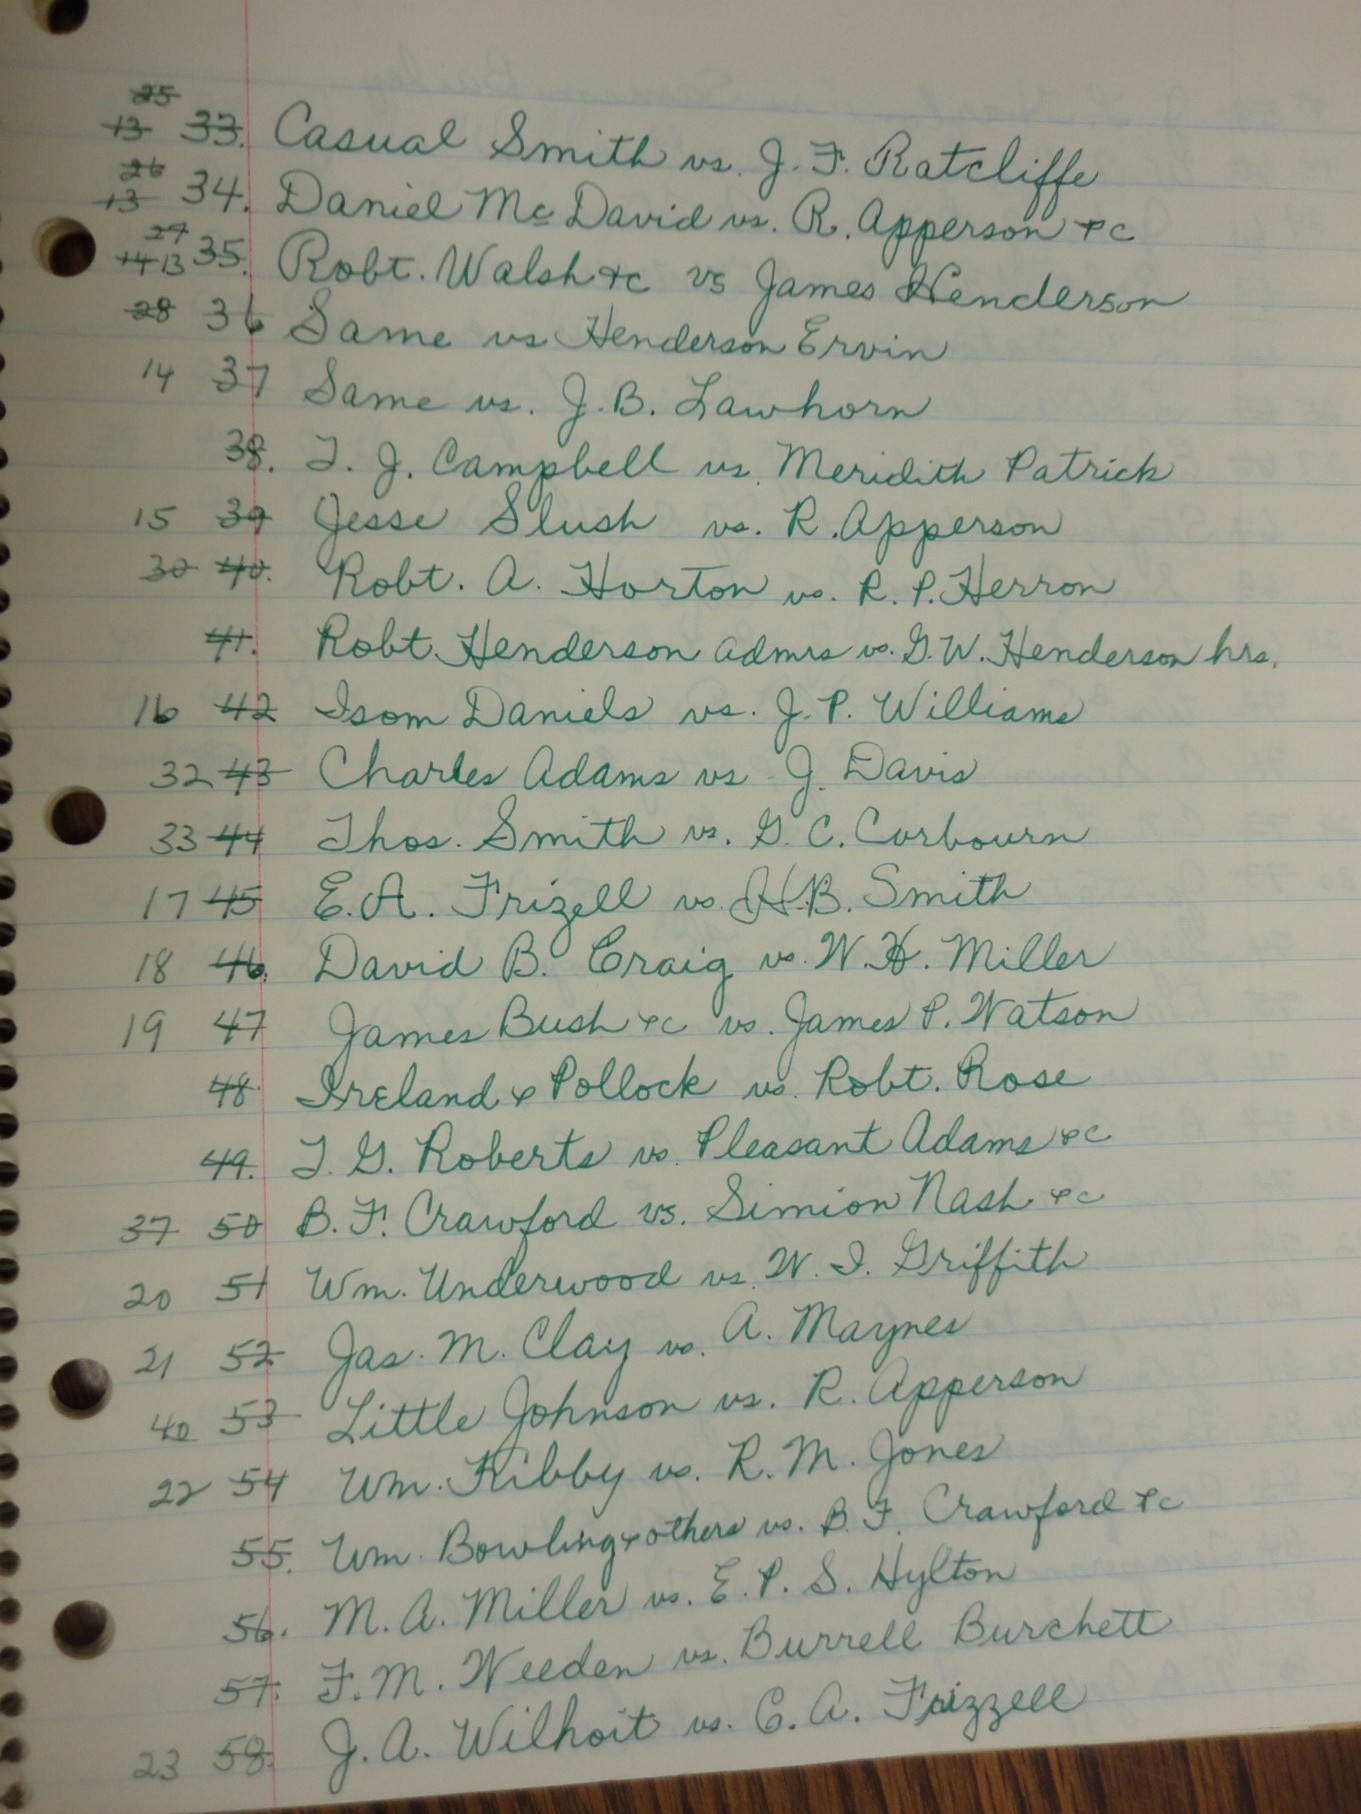 25
13 33. Casual Smith vs. J. F. Ratcliffe
26
13 34. Daniel Mc David vs. R. Apperson &c
27
14 13 35. Robt. Walsh &c vs James Henderson
28 36 Same vs Henderson Ervin
14 37 Same vs. J. B. Lawhorn
38. T. J. Campbell vs. Meridith Patrick
15 39 Jesse Slush vs. R. Apperson
30 40. Robt. A. Horton vs. R. P. Herron
41. Robt. Henderson admrs vs. G. W. Henderson hrs.
16 42 Isom Daniels vs. J. P. Williams
32 43 Charles Adams vs. J. Davis
33 44 Thos. Smith vs. G. C. Carbourn
17 45 E. A. Frizell vs. H. B. Smith
18 46. David B. Craig vs. W. H. Miller
19 47 James Bush &c vs. James P. Watson
48. Ireland & Pollock vs. Robt. Rose
49. T. G. Roberts vs. Pleasant Adams &c
37 50 B. F. Crawford vs. Simion Nash &c
20 51 Wm. Underwood vs. W. I. Griffith
21 52 Jas. M. Clay vs. A. Maynes
40 53 Little Johnson vs. R. Apperson
22 54 Wm. Kibby vs. R. M. Jones
55. Wm. Bowling & others vs. B. F. Crawford &c
56. M. A. Miller vs. E. P. S. Hylton
57. F. M. Weeden vs. Burrell Burchett
23 58. J. A. Wilhoit vs. C. A. Frizzell